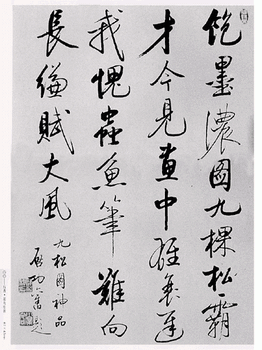 飽墨濃圖九棵松霸
才今見畫中雄衰遲
我愧蟲魚筆難向
長縑賦大風
九松圖神品
啟功題